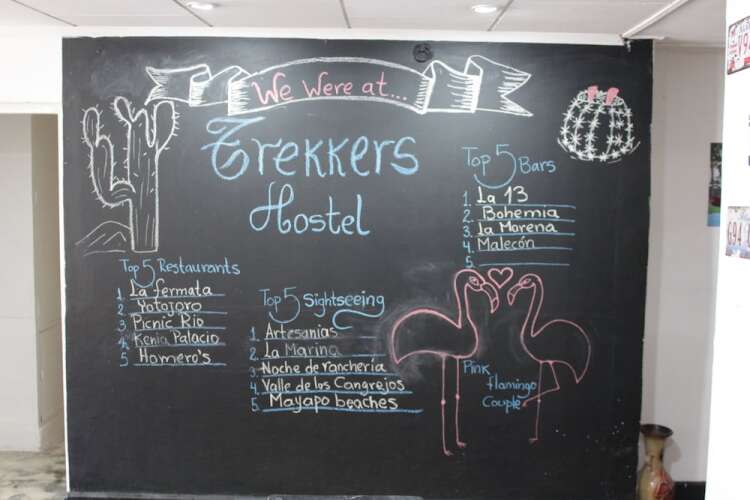 We Were at...
Trekkers
Hostel
Top 5 Bars
1. La 13
2. Bohemia
3. La Morena
4. Malecón
5.
Top 5 Restaurants
1. La fermata
2. Yotojoro
3. Picnic Rio
4. Kenia Palacio
5. Homero's
Top 5 Sightseeing
1. Artesanias
2. La Marina
3. Noche de ranchería
4. Valle de los Cangrejos
5. Mayapo beaches
Pink
flamingo
Couple